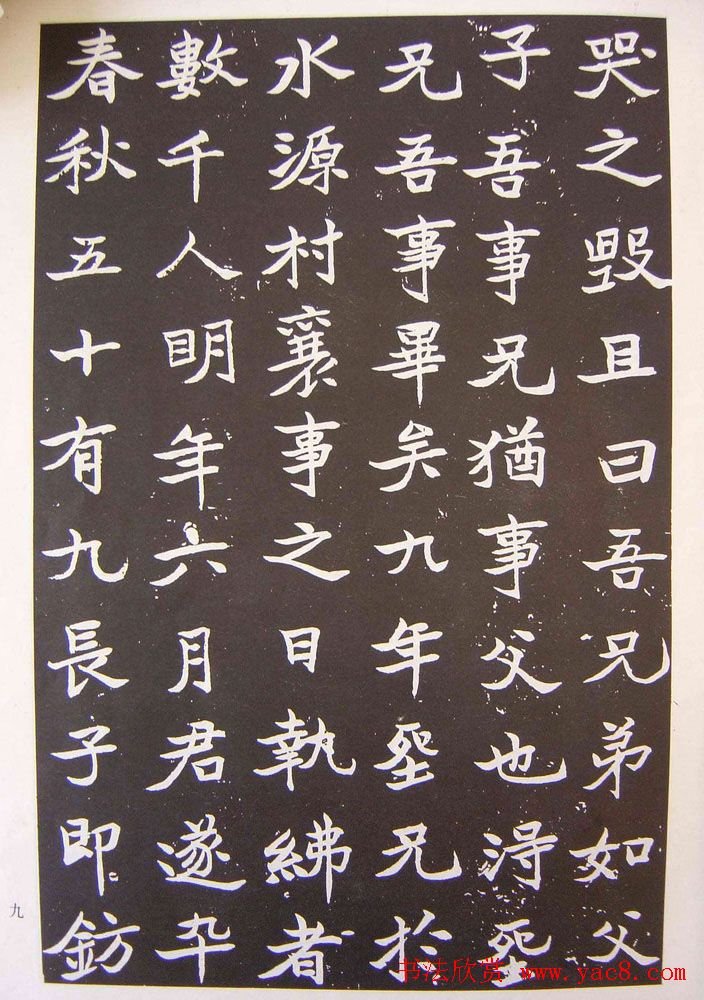 哭之毀且曰吾兄弟如父
子吾事兄猶事父也淂塟
兄吾事畢矣九年塟兄於
水源村襄事之日執紼者
數千人明年六月君遂卒
春秋五十有九長子即鈁
九
书法欣赏 www.yac8.com